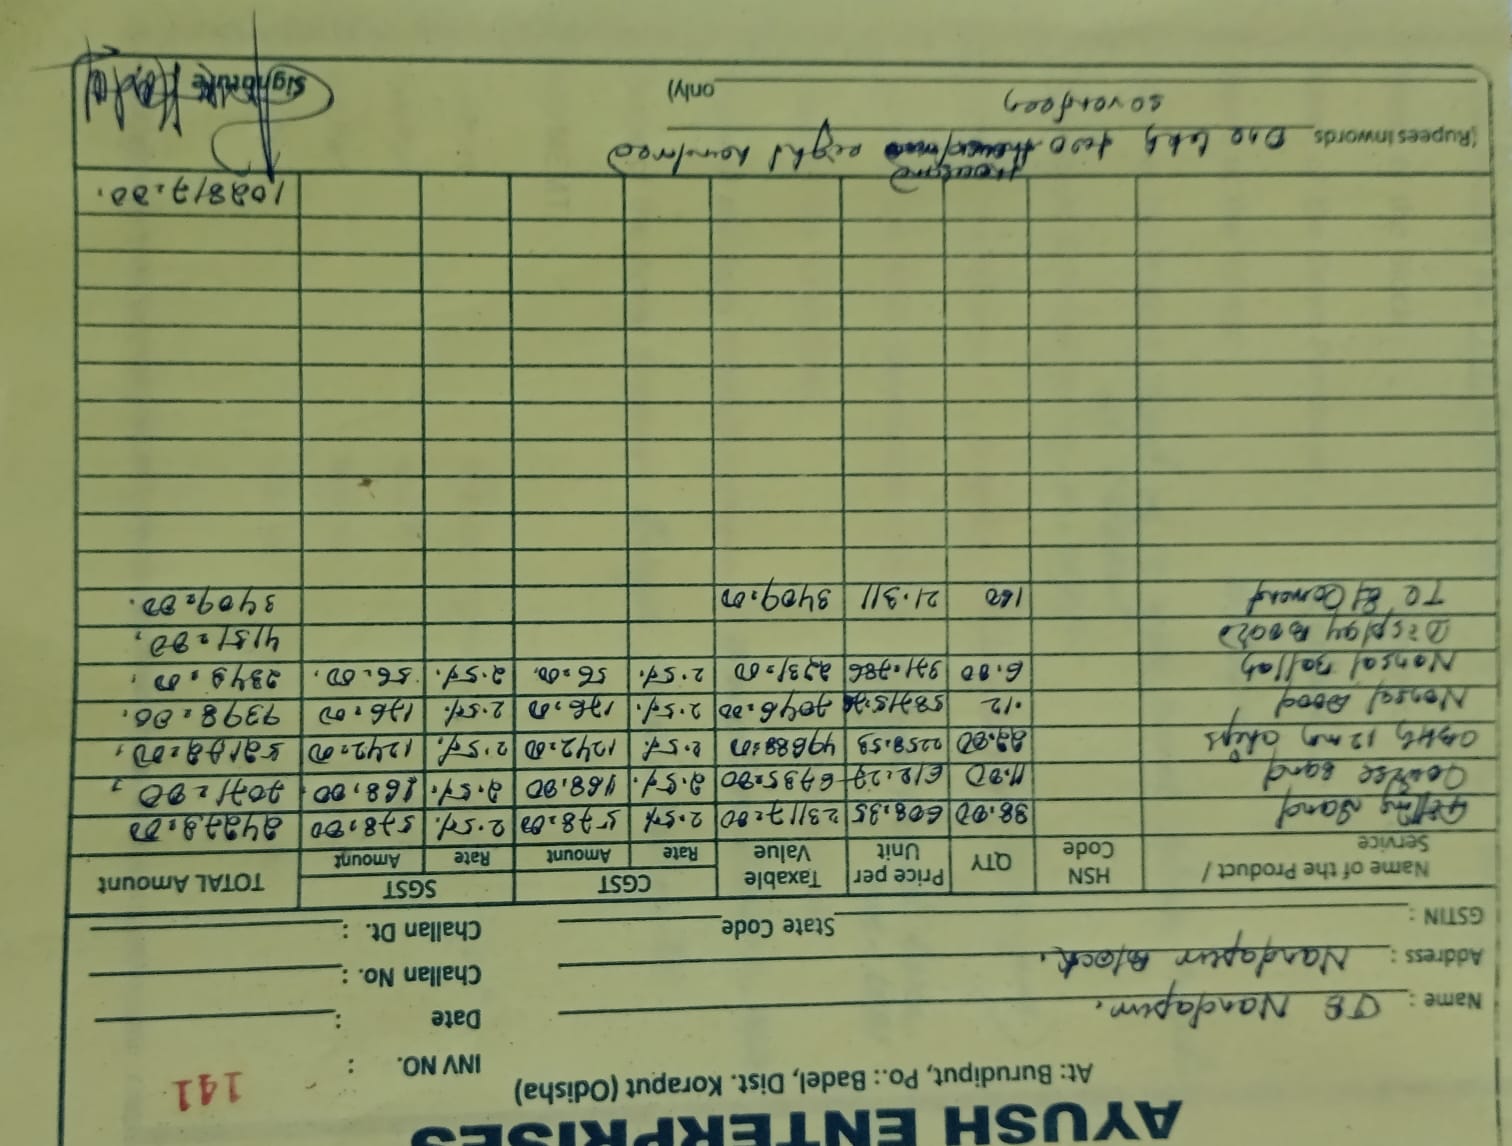 AYUSH ENTERPRISES
At: Burudiput, Po.: Badel, Dist. Koraput (Odisha)
INV NO. : 141
Name : JE Nandapur. Date :
Address : Nandapur Block. Challan No. :
GSTIN : State Code Challan Dt. :
Name of the Product / Service HSN Code QTY Price per Unit Taxable Value CGST Rate Amount SGST Rate Amount TOTAL Amount
Filling Sand 38.00 608.35 23117.00 2.5%. 578.00 2.5%. 578.00 24273.00
Sand 11.00 612.27 6735.00 2.5%. 168.00 2.5%. 168.00 7071.00
12 mm chips 22.00 2258.53 49688.00 2.5%. 1242.00 2.5%. 1242.00 52172.00
Nonsal wood .12 7046.00 2.5%. 176.00 2.5%. 176.00 7398.00
Nonsal Ballah 6.00 371.786 2231.00 2.5%. 56.00 2.5%. 56.00 2343.00
Display Board 4151.00
TC of Cement 160 21.311 3409.00 3409.00
102817.00
(Rupees inwords One lakh two thousand eight hundred
seventeen only)
Signature